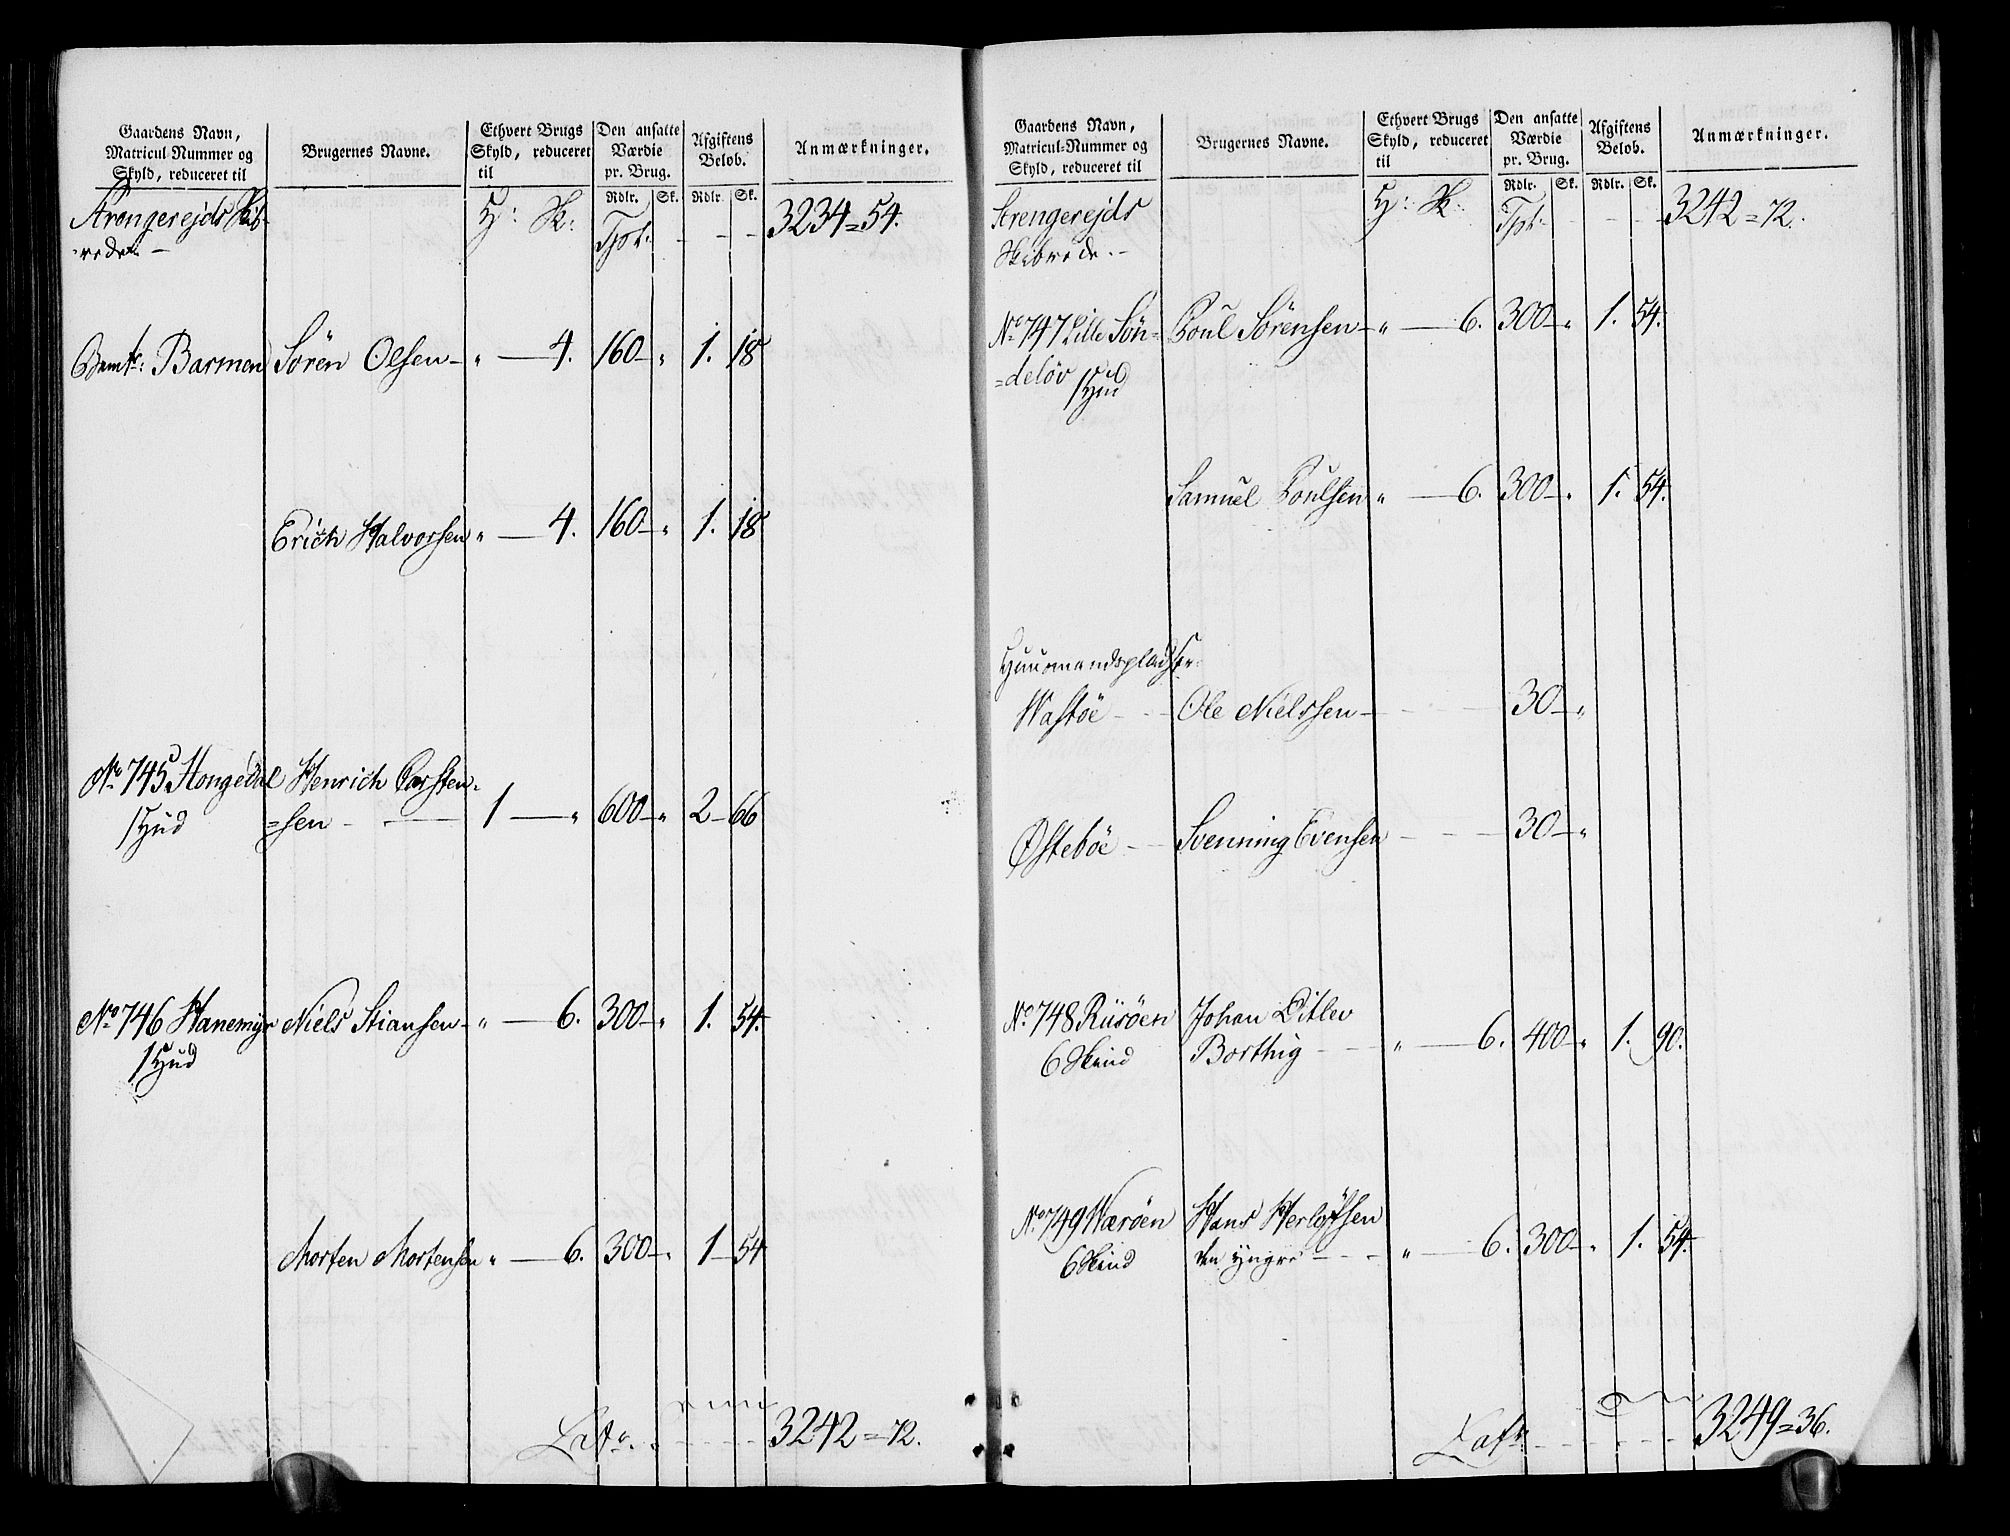 Gaardens Navn, Matricul-Nummer og Skyld, reduceret til
Brugernes Navne.
Ethvert Brugs Skyld, reduceret til
Den ansatte Værdie pr. Brug.
Afgiftens Beløb.
Anmærkninger.
Rdlr. Sk. Rdlr. Sk.
Strengerejds Skib-
-rede
H: Sk: Tpt: 3234=54.
Barmen Søren Olsen " 4. 160 " 1. 18
Erich Halvorsen " 4. 160 " 1. 18
No 745 Hongedal Henrich Carsten-
1 Hud =sen 1 " 600 " 2 66
No 746 Hanemyr Niels Stiansen " 6. 300 " 1. 54.
1 Hud
Morten Mortensen " 6. 300 " 1 54
Lat. 3242=72.
Gaardens Navn, Matricul-Nummer og Skyld, reduceret til
Brugernes Navne.
Ethvert Brugs Skyld, reduceret til
Den ansatte Værdie pr. Brug.
Afgiftens Beløb.
Anmærkninger.
Rdlr. Sk. Rdlr. Sk.
Strengerejds
Skibrede
H: Sk: Tpt: 3242=72.
No 747 Lille Søn= Poul Sørensen " 6. 300 " 1. 54.
=deløv 1 Hud
Samuel Poulsen " 6. 300 " 1. 54.
Huusmandspladser
Wastöe Ole Nielssen 30 "
Østebóe Svenning Evensen 30 "
No 748 Riisöen Johan Ditlev
6 Skind Borthig " 6. 400 " 1. 90.
No 749 Wæröen Hans Herlofsen
6 Skind den yngre " 6. 300 " 1. 54.
Lat. 3249=36.